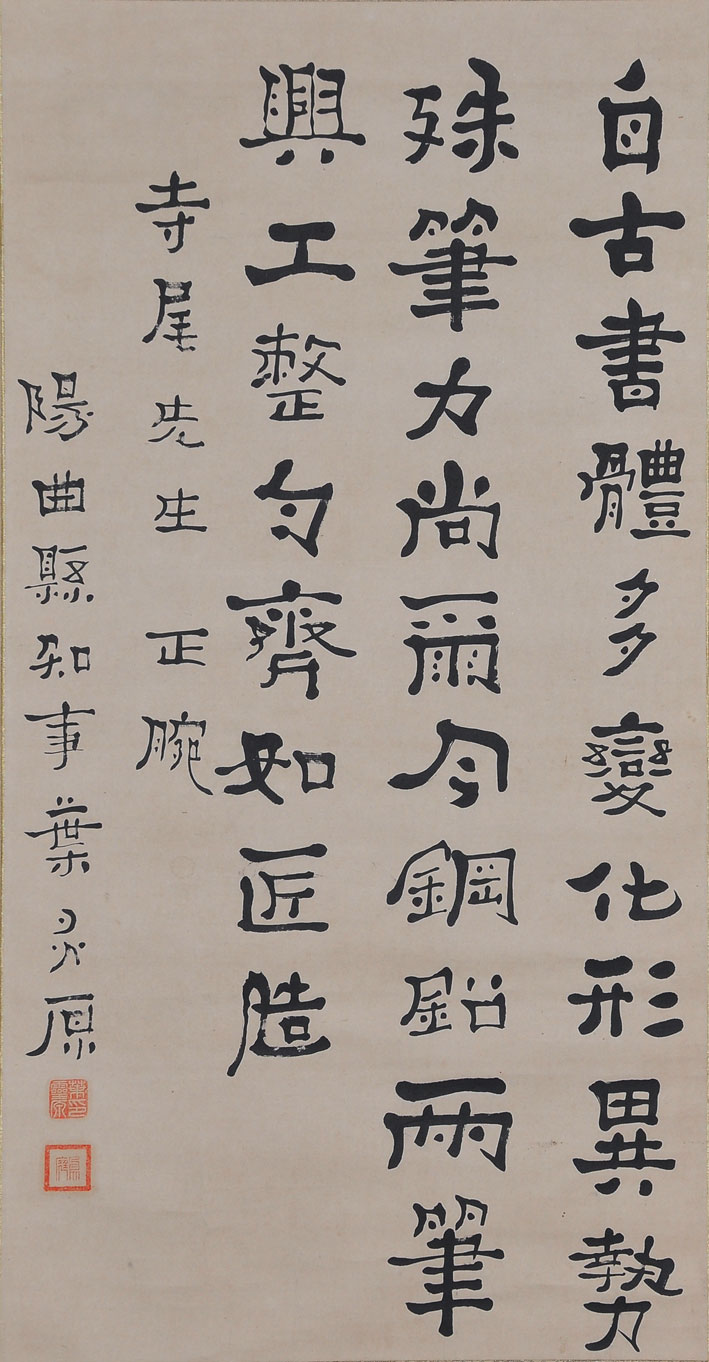 自古書體多變化形異勢
殊筆力尚爾今鋼鉛兩筆
興工整勻齊如匠造
寺尾先生 正腕
陽曲縣知事葉灵原